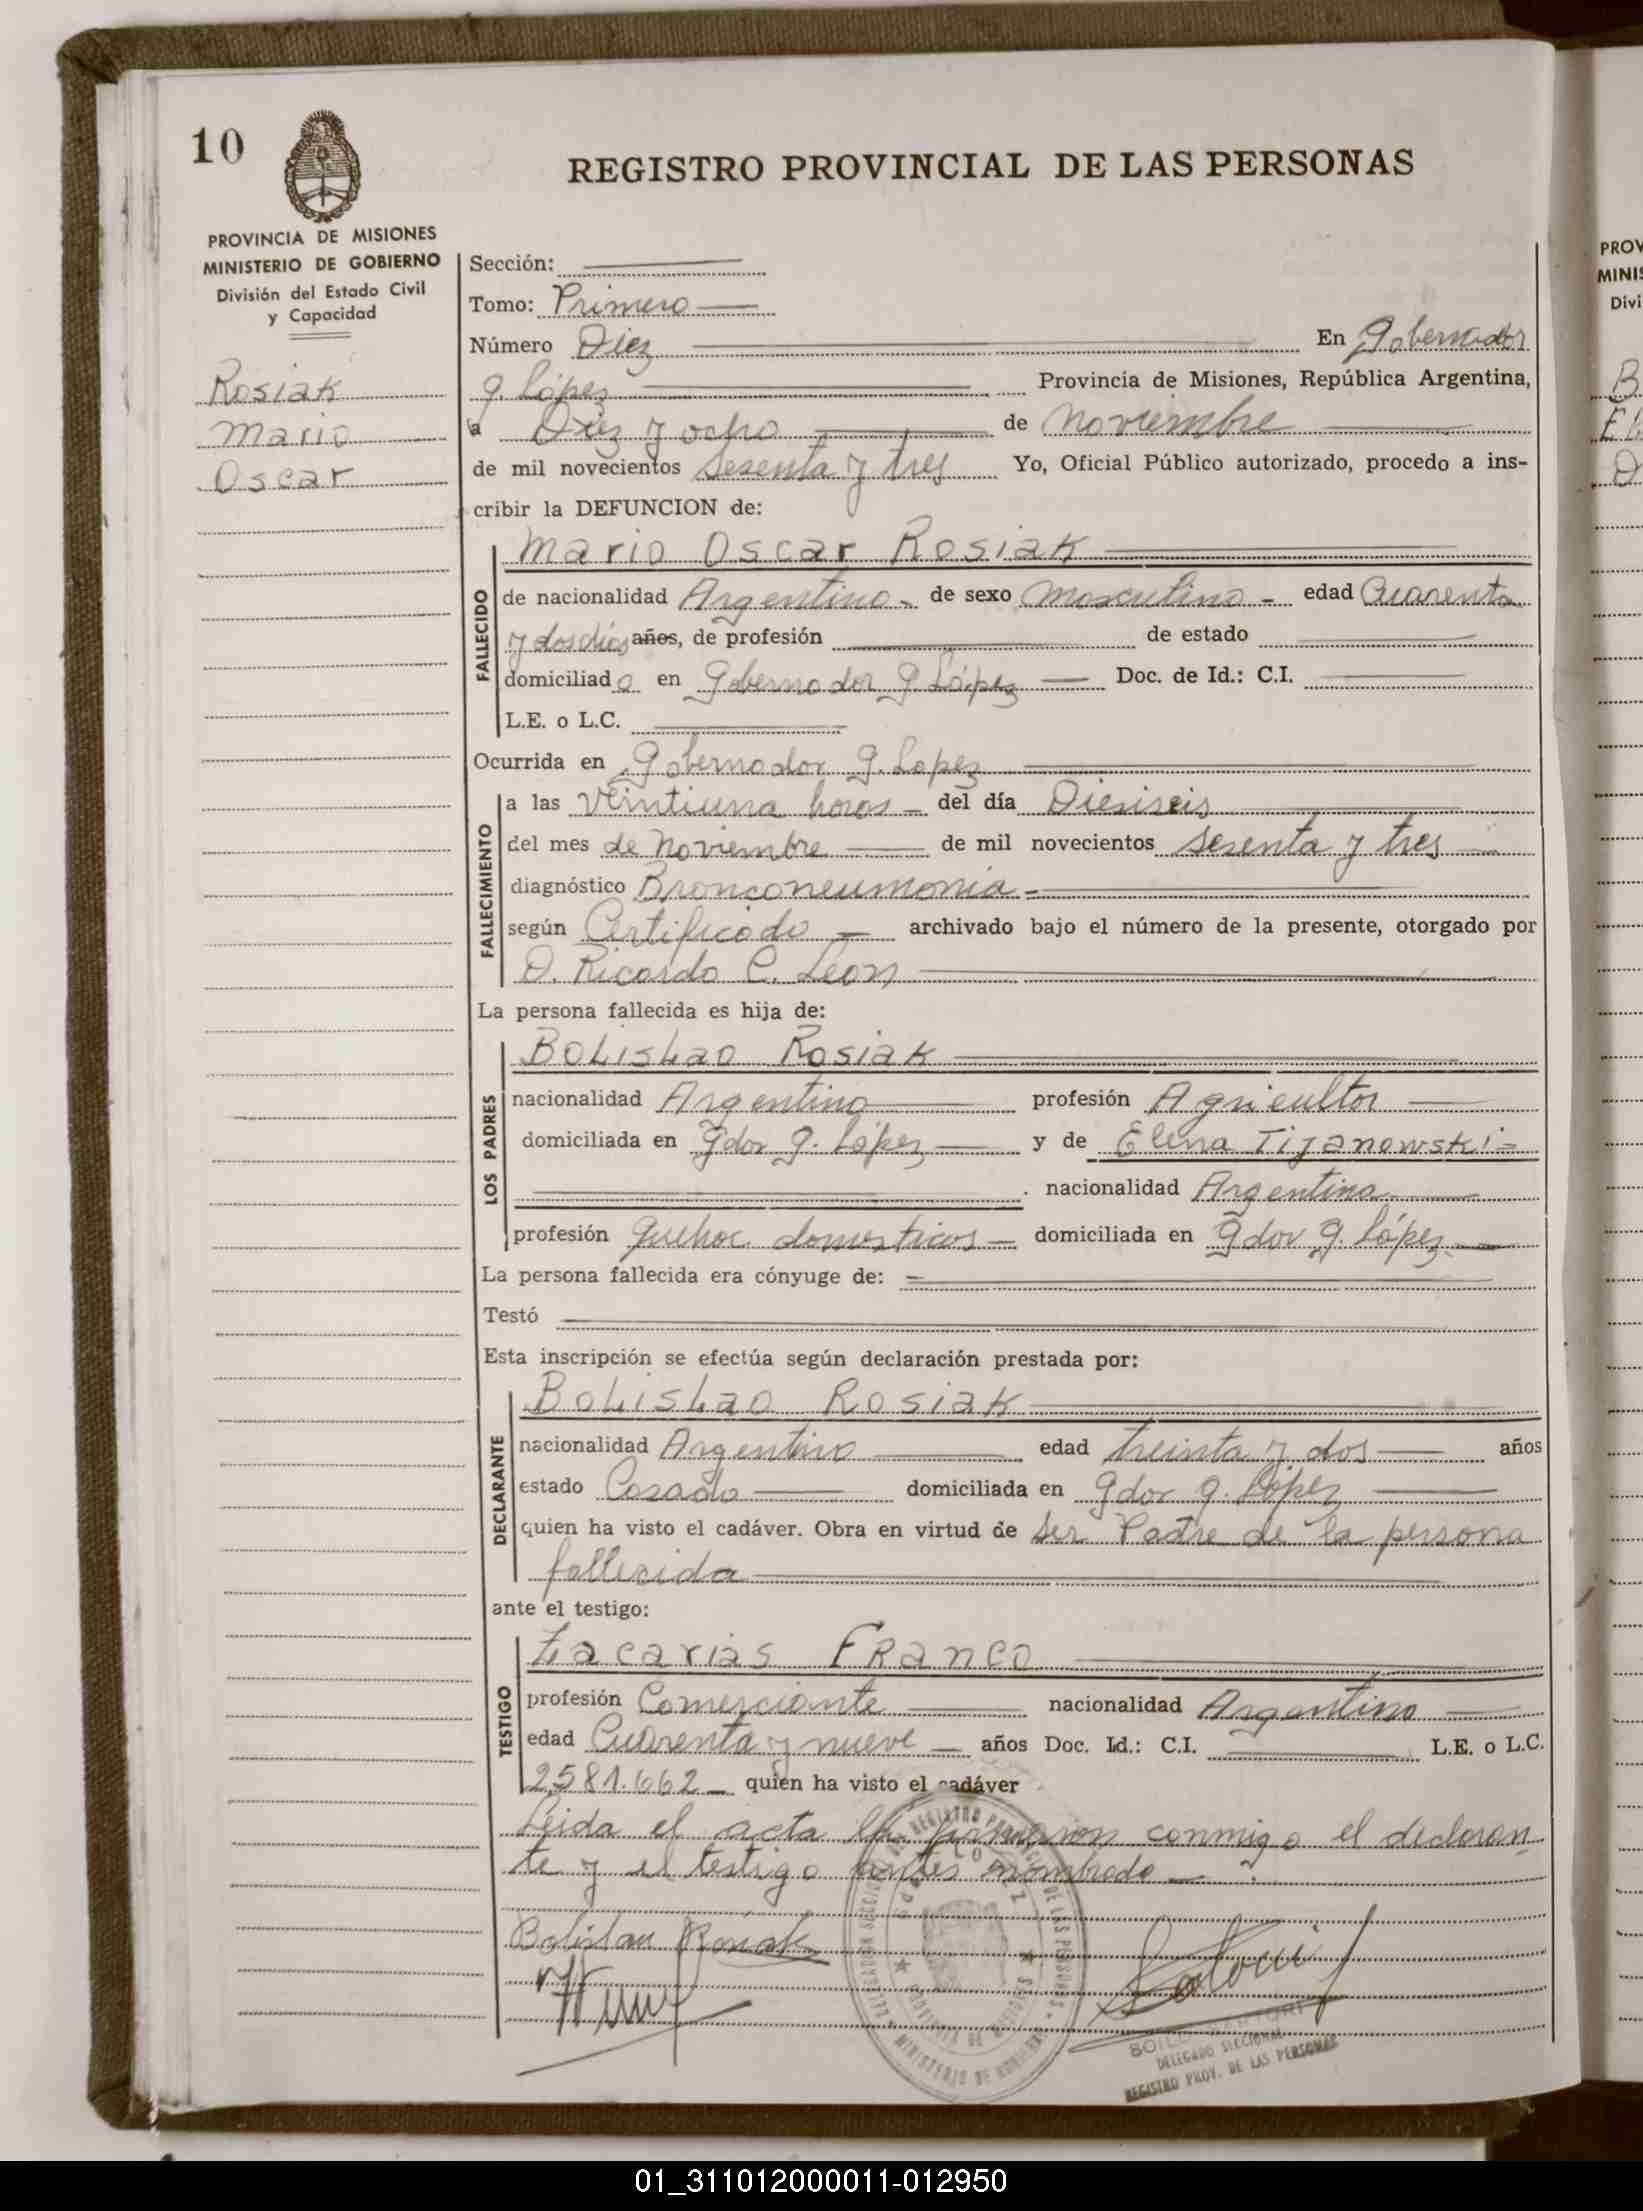 10
REGISTRO PROVINCIAL DE LAS PERSONAS
PROVINCIA DE MISIONES
MINISTERIO DE GOBIERNO
División del Estado Civil
y Capacidad
Rosiak
Mario
Oscar
Sección:
Tomo: Primero
Número Diez En Gobernador
g. López Provincia de Misiones, República Argentina,
a Diez y ocho de Noviembre
de mil novecientos sesenta y tres Yo, Oficial Público autorizado, procedo a ins-
cribir la DEFUNCION de:
Mario Oscar Rosiak
FALLECIDO
de nacionalidad Argentino de sexo masculino edad Cuarenta
y dos días años, de profesión de estado
domiciliado en Gobernador g. López Doc. de Id.: C.I.
L.E. o L.C.
Ocurrida en Gobernador g. Lopez
FALLECIMIENTO
a las veintiuna horas del día Diesiseis
del mes de Noviembre de mil novecientos sesenta y tres
diagnóstico Bronconeumonia
según Certificado archivado bajo el número de la presente, otorgado por
D. Ricardo C. Leon
La persona fallecida es hija de:
LOS PADRES
Bolislao Rosiak
nacionalidad Argentino profesión Agricultor
domiciliada en Gdor g. López y de Elena Tijanowski
nacionalidad Argentina
profesión quehac. domesticos domiciliada en Gdor g. López
La persona fallecida era cónyuge de:
Testó
Esta inscripción se efectúa según declaración prestada por:
DECLARANTE
Bolislao Rosiak
nacionalidad Argentino edad treinta y dos años
estado Casado domiciliada en Gdor g. López
quien ha visto el cadáver. Obra en virtud de ser Padre de la persona
fallecida
ante el testigo:
TESTIGO
Zacarias FRanco
profesión Comerciante nacionalidad Argentino
edad Cuarenta y nueve años Doc. Id.: C.I. L.E. o L.C.
2581.662 quien ha visto el cadáver
Leida el acta la firmaron conmigo el declaran-
te y el testigo antes nombrado
Bolislau Rosiak
DELEGADO SECCIONAL
REGISTRO PROV. DE LAS PERSONAS
PROV
MINIS
Divi
01_311012000011-012950